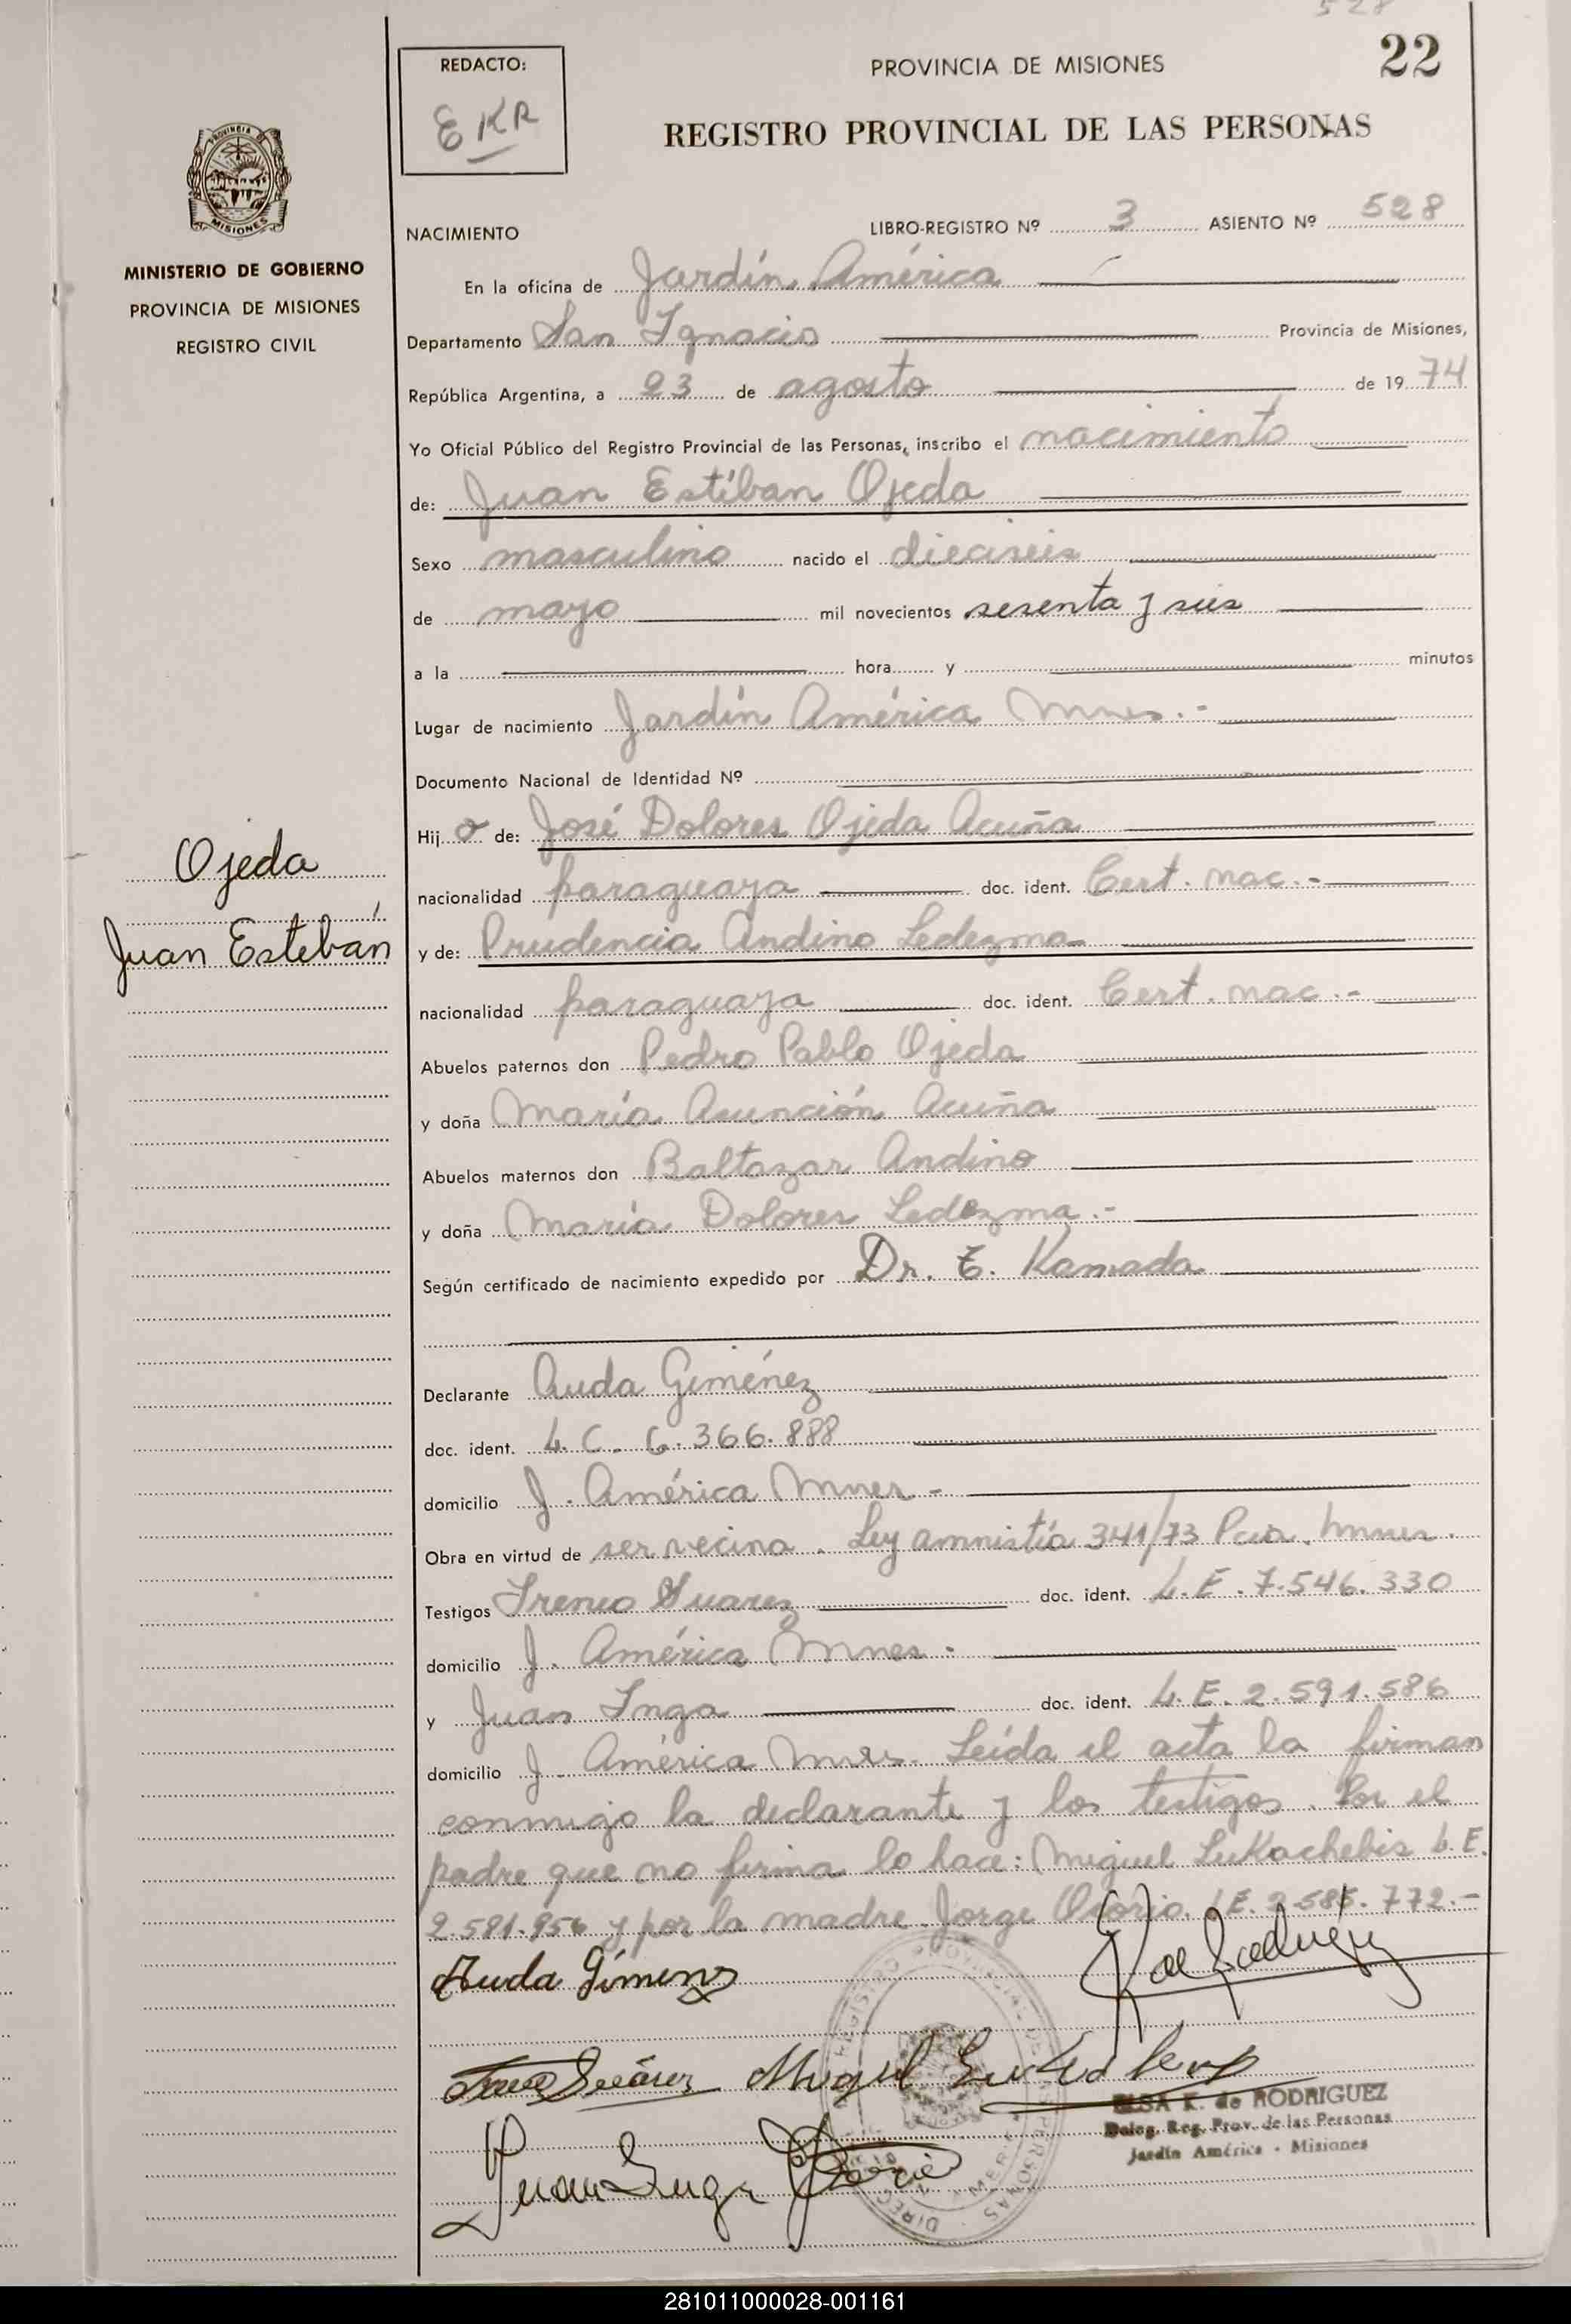 528
22
REDACTO:
EKR
PROVINCIA DE MISIONES
REGISTRO PROVINCIAL DE LAS PERSONAS
PROVINCIA DE
MISIONES
MINISTERIO DE GOBIERNO
PROVINCIA DE MISIONES
REGISTRO CIVIL
NACIMIENTO
LIBRO-REGISTRO Nº 3 ASIENTO Nº 528
En la oficina de Jardín América
Departamento San Ignacio Provincia de Misiones,
República Argentina, a 23 de agosto de 19 74
Yo Oficial Público del Registro Provincial de las Personas, inscribo el nacimiento
de: Juan Estíban Ojeda
Sexo masculino nacido el dieciseis
de mayo mil novecientos sesenta y seis
a la hora y minutos
Lugar de nacimiento Jardín América Mnes.-
Documento Nacional de Identidad Nº
Hij o de: José Dolores Ojeda Acuña
Ojeda
Juan Esteban
nacionalidad paraguaya doc. ident. Cert. nac.-
y de: Prudencia Andino Ledezma
nacionalidad paraguaya doc. ident. Cert. nac.-
Abuelos paternos don Pedro Pablo Ojeda
y doña María Asunción Acuña
Abuelos maternos don Baltazar Andino
y doña María Dolores Ledezma.-
Según certificado de nacimiento expedido por Dr. E. Kamada
Declarante Auda Giménez
doc. ident. L. C. 6.366.888
domicilio J. América Mnes -
Obra en virtud de ser vecina. Ley amnistía 341/73 Pcia. Mnes.
Testigos Ireneo Suarez doc. ident. L.E. 7.546.330
domicilio J. América Mnes.
y Juan Inga doc. ident. L.E. 2.591.586
domicilio J. América Mnes. Leída el acta la firman
conmigo la declarante y los testigos. Por el
padre que no firma lo hace: Miguel Lukachebis L.E.
2.581.956 y por la madre Jorge Osorio. L.E. 2.585.772.-
Auda Gimenz
Suárez Miguel
ELSA K. de RODRIGUEZ
Deleg. Reg. Prov. de las Personas
Jardín América - Misiones
Juan Inga
281011000028-001161